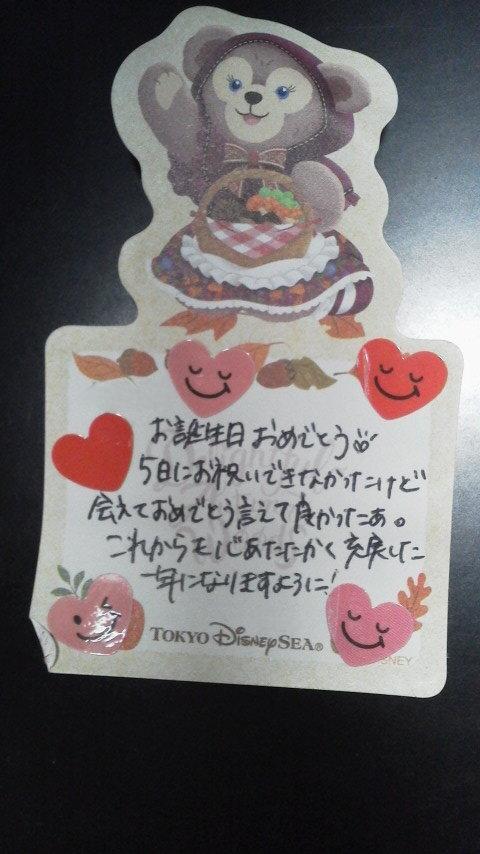 お誕生日おめでとう
5日にお祝いできなかったけど
会えておめでとう言えて良かったぁ。
これからも心あたたかく充実した
一年になりますように!
TOKYO DISNEYSEA®
DISNEY